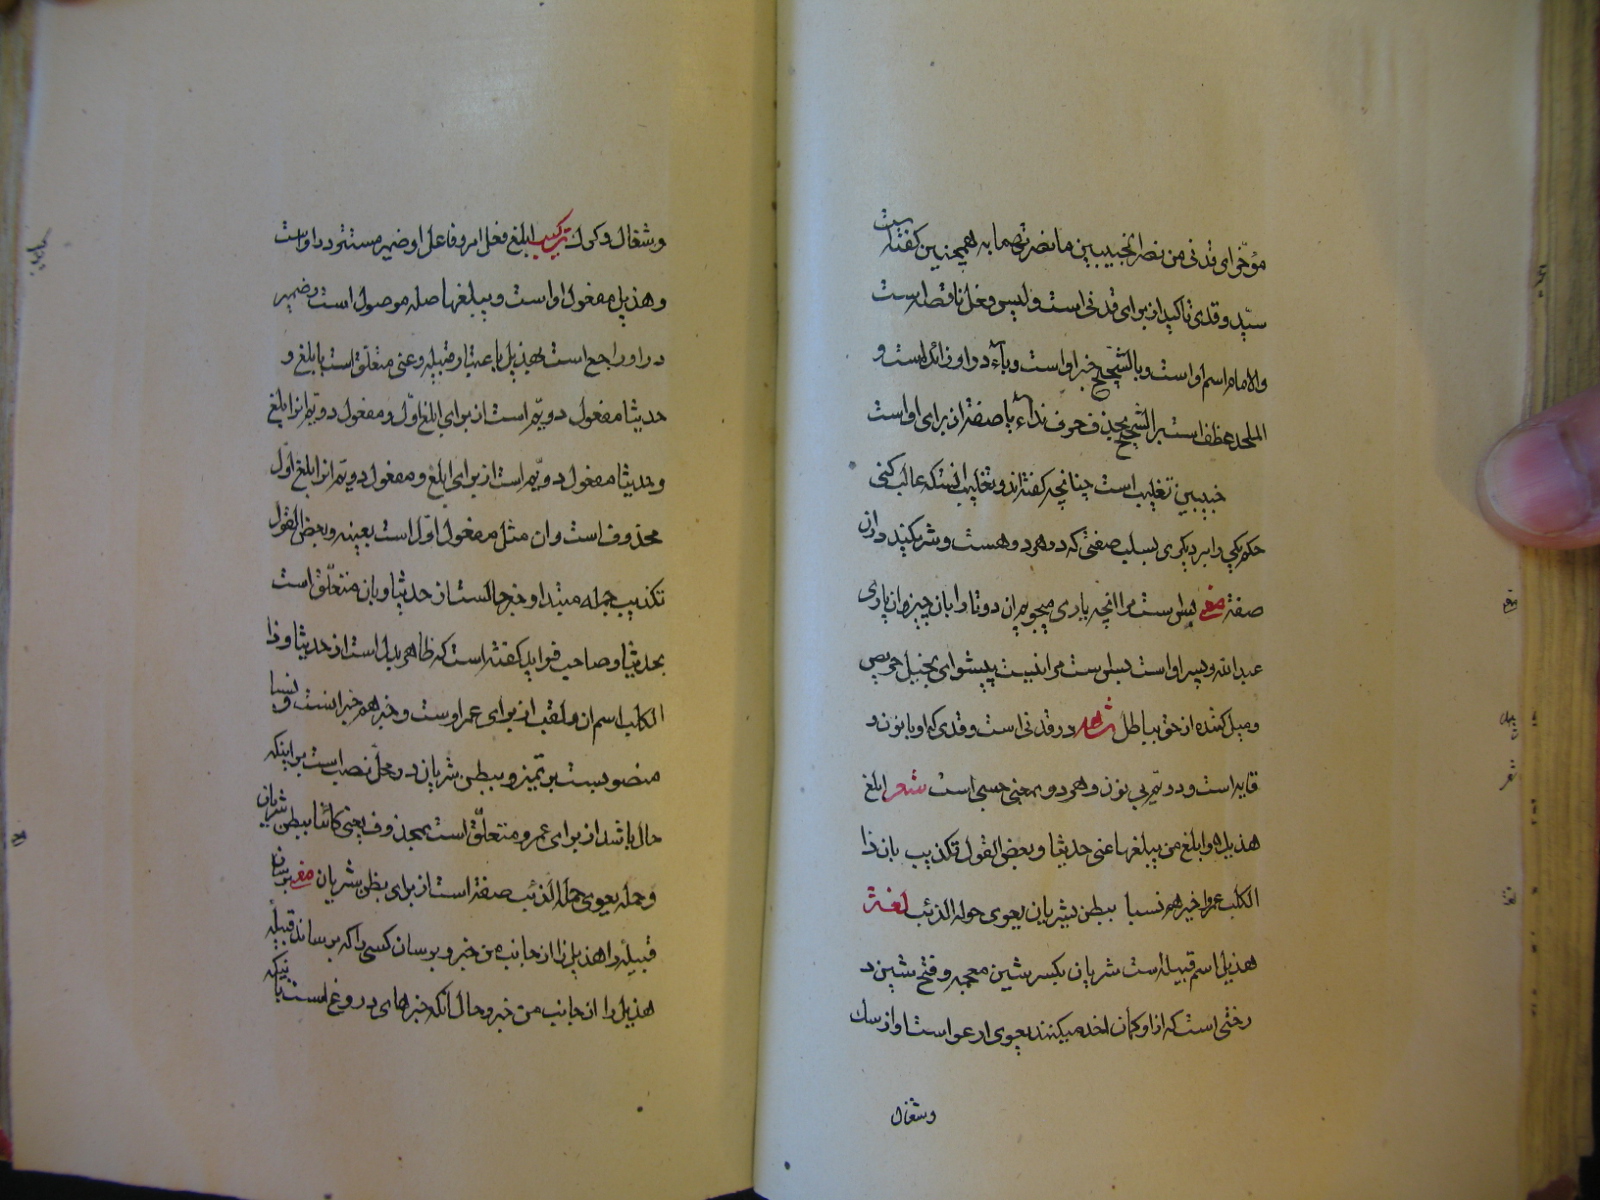 مؤخر ای قدنی من نصر الخبیبین ما نصرتهما به همچنین کفته است
سید و قدی تاکید از برای قدنی است و لیس فعل ناقصه است
والامام اسم او است و بالشحیح خبر او است و باء در او زائد است و
الملحد عطف است بر الشحیح بحذف حرف نداء یا صفة از برای او است
خبیبین تغلیب است چنانچه کفته اند و تغلیب انستکه غالب کنی
حکم یکی را بر دیکری بسلب صفتی که در هر دو هست و شریکند در ان
صفة مع بس است مرا انچه یاری میجویم ان دو تا را بان چیز ان یاری
عبدالله و پسر او است بس است مرا نیست پیشوای بخیل حریص
و میل کننده از حق بباطل شاهد در قدنی است و قدی که او با نون و
قایه است و دویّم بی نون و هر دو بمعنی حسبی است شعر ابلغ
هذیلا و ابلغ من یبلغها عنی حدیثا و بعض القول تکذیب بان ذا
الکلب عمروا خیرهم نسبا ببطن شریان یعوی حوله الذئب لغة
هذیل اسم قبیله است شریان بکسر شین معجمه و فتح شین د
رختی است که از او کمان اخذ میکنند یعوی ارعو است اواز سک
وشغال
وشغال و کرک ترکیب ابلغ فعل امر و فاعل او ضمیر مستتر در او است
و هذیل مفعول او است و یبلغها صله موصول است و ضمیر
در او راجع است بهذیل باعتبار قبیله و عنی متعلّق است بابلغ و
حدیثا مفعول دویّم است از برای ابلغ اوّل و مفعول دویّم از ابلغ
و حدیثا مفعول دویّم است از برای ابلغ و مفعول دویّم از ابلغ اوّل
محذوف است و ان مثل مفعول اوّل است بعینه و بعض القول
تکذیب جمله مبتدا و خبر حالست از حدیثا و بان متعلّق است
بحدیثا و صاحب فواید کفته است که ظاهر بدل است از حدیثا و ذا
الکلب اسم ان و لقب از برای عمرو است و خیرهم خبر انست و نسبا
منصوبست بر تمیز و ببطن شریان در محلّ نصب است بر اینکه
حال باشد از برای عمرو و متعلّق است بمحذوف یعنی کائنا ببطن شریان
و جمله یعوی حوله الذئب صفة است از برای بطن شریان مع برسان
قبیله را هذیل را از جانب من خبر و برسان کسی را که برساند قبیله
هذیل را از جانب من خبر و حال انکه خبرهای دروغ است باینکه